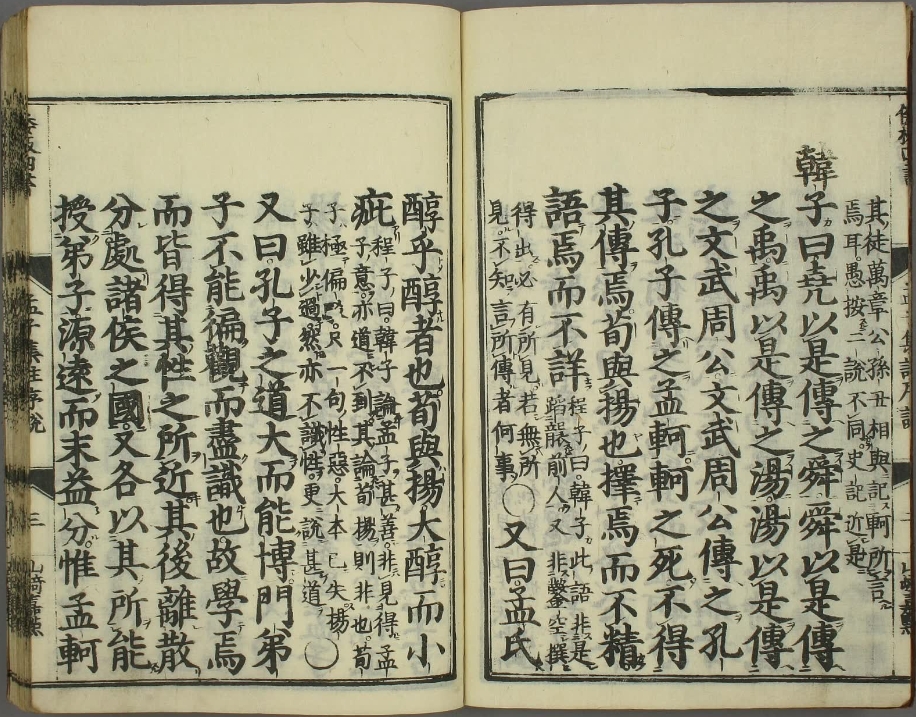 其徒萬章公孫丑相與記軻所言
焉耳愚按二説不同史記近是
韓子曰堯以是傳之舜舜以是傳
之禹禹以是傳之湯湯以是傳
之文武周公文武周公傳之孔
子孔子傳之孟軻軻之死不得
其傳焉荀與揚也擇焉而不精
語焉而不詳程子曰韓子此語非是
蹈襲前人又非鑿空撰
得出必有所見若無所
見不知言所傳者何事○又曰孟氏
醇乎醇者也荀與揚大醇而小
疵程子曰韓子論孟子甚善非見得孟
子意亦道不到其論荀揚則非也荀
子極偏駁只一句性惡大本已失揚
子雖少過然亦不識性更説甚道○
又曰孔子之道大而能博門弟
子不能徧觀而盡識也故學焉
而皆得其性之所近其後離散
分處諸侯之國又各以其所能
授弟子源遠而末益分惟孟軻
孟子集註序説
三